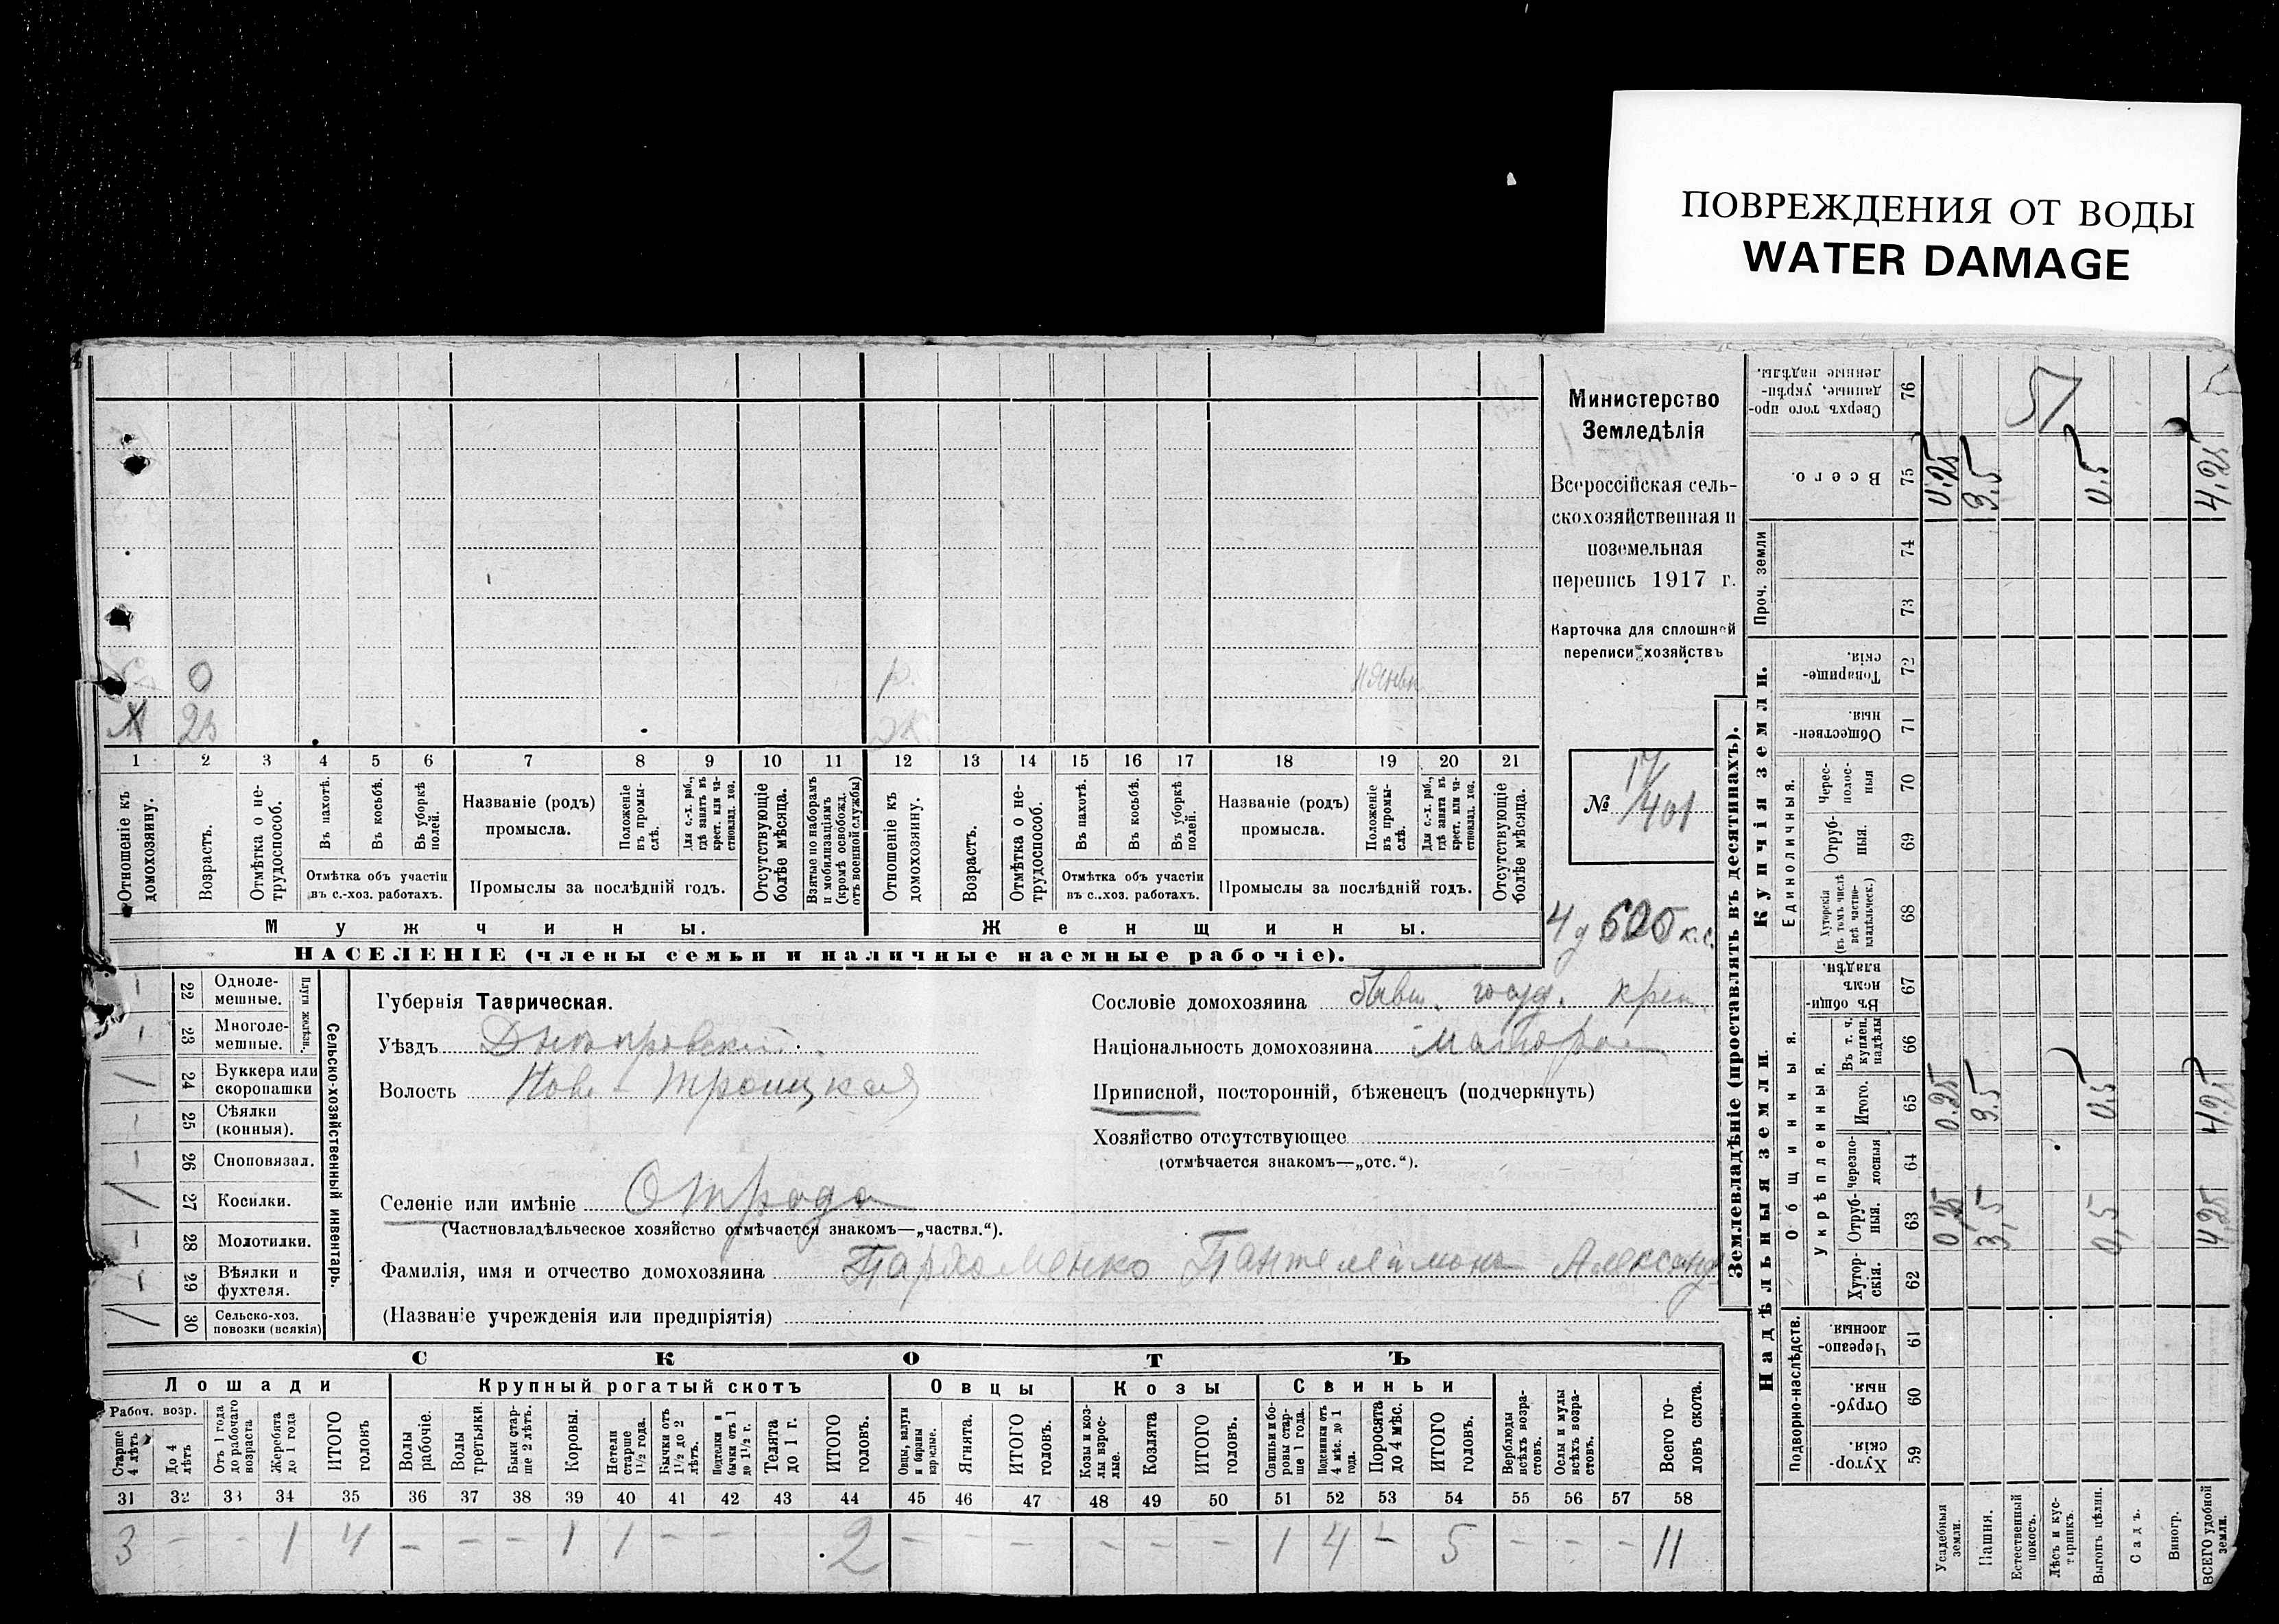 ПОВРЕЖДЕНИЯ ОТ ВОДЫ
WATER DAMAGE
Министерство
Земледѣлія
Всероссійская сель-
скохозяйственная и
поземельная
перепись 1917 г.
Карточка для сплошной
переписи хозяйствъ
№ 17/401
4 д 600 к.с.
О
М 23
Р.
Ж.
1 2 3 4 5 6 7 8 9 10 11 12 13 14 15 16 17 18 19 20 21
Отношеніе къ домохозяину.
Возрастъ.
Отмѣтка о не-трудоспособ.
Въ пахотѣ.
Въ косьбѣ.
Въ уборкѣ полей.
Отмѣтка объ участіи
въ с.-хоз. работахъ.
Названіе (родъ)
промысла.
Положеніе въ промы-слѣ.
Для с.-х. раб., гдѣ занятъ въ крест. или ча-стновлад. хоз.
Промыслы за послѣдній годъ.
Отсутствующіе болѣе мѣсяца.
Взятые по наборамъ и мобилизаціямъ (кромѣ освобожд. отъ военной службы)
Отношеніе къ домохозяину.
Возрастъ.
Отмѣтка о не-трудоспособ.
Въ пахотѣ.
Въ косьбѣ.
Въ уборкѣ полей.
Отмѣтка объ участіи
въ с.-хоз. работахъ.
Названіе (родъ)
промысла.
Положеніе въ промы-слѣ.
Для с.-х. раб., гдѣ занята въ крест. или ча-стновлад. хоз.
Промыслы за послѣдній годъ.
Отсутствующіе болѣе мѣсяца.
Мужчины.
Женщины.
НАСЕЛЕНІЕ (члены семьи и наличные наемные рабочіе).
Сельско-хозяйственный инвентарь.
Плуги желѣзн.
22 Одноле-мешные. –
23 Многоле-мешные. –
24 Буккера или скоропашки /
25 Сѣялки (конныя). –
26 Сноповязал. –
27 Косилки. /
28 Молотилки. –
29 Вѣялки и фухтеля. –
30 Сельско-хоз. повозки (всякія) /
Губернія Таврическая.
Уѣздъ Днѣпровскій
Волость Ново-Троицкая
Селеніе или имѣніе Отрада
(Частновладѣльческое хозяйство отмѣчается знакомъ—„частвл.“).
Фамилія, имя и отчество домохозяина Пархоменко Пантелеймонъ Александ
(Названіе учрежденія или предпріятія)
Сословіе домохозяина бывш. госуд. крест
Національность домохозяина Малорос
Приписной, посторонній, бѣженецъ (подчеркнуть)
Хозяйство отсутствующее
(отмѣчается знакомъ—„отс.“).
СКОТЪ
Лошади
Крупный рогатый скотъ
Овцы
Козы
Свиньи
Рабоч. возр.
Старше 4 лѣтъ
До 4 лѣтъ
Отъ 1 года до рабочаго возраста
Жеребята до 1 года
ИТОГО головъ
Волы рабочіе.
Волы третьяки.
Быки стар-ше 2 лѣтъ.
Коровы.
Нетели старше 1½ года.
Бычки отъ 1½ до 2 лѣтъ.
Подтелки и бычки отъ 1 до 1½ г.
Телята до 1 г.
ИТОГО головъ.
Овцы, валухи и бараны взрослые.
Ягнята.
ИТОГО головъ.
Козы и коз-лы взрос-лые.
Козлята
ИТОГО головъ.
Свиньи и бо-ровы стар-ше 1 года.
Подсвинки отъ 4 мѣс. до 1 года.
Поросята до 4 мѣс.
ИТОГО головъ.
Верблюды всѣхъ возра-стовъ.
Ослы и мулы всѣхъ возра-стовъ.
Всего го-ловъ скота.
31 32 33 34 35 36 37 38 39 40 41 42 43 44 45 46 47 48 49 50 51 52 53 54 55 56 57 58
3 – – 1 4 – – – 1 1 – – 2 – – – – – – 1 4 – 5 – – – 11
Землевладѣніе (проставлять въ десятинахъ).
Купчія земли.
Надѣльныя земли.
Проч. земли
Единоличныя.
Общинныя.
Укрѣпленныя.
Подворно-наслѣдств.
76 Сверхъ того про-данные, укрѣп-ленные надѣлы.
75 Всего.
74
73
72 Товарище-скія.
71 Обществен-ныя.
70 Черес-полос-ныя
69 Отруб-ныя.
68 Хуторскія (въ томъ числѣ всѣ частно-владѣльческ.)
67 Въ общин-номъ владѣн.
66 Въ т. ч. куплен. надѣлы
65 Итого.
64 Черезпо-лосныя
63 Отруб-ныя.
62 Хутор-скія.
61 Черезпо-лосныя
60 Отруб-ныя.
59 Хутор-скія.
Усадебныя земли.
Пашня.
Естественный покосъ.
Лѣсъ и кус-тарникъ.
Выгонъ цѣлин.
Садъ.
Виногр.
ВСЕГО удобной земли.
51
0.25 3.5 0.5 4.25
0.25 3.5 0.5 4.25
0,25 3,5 0,5 4,25